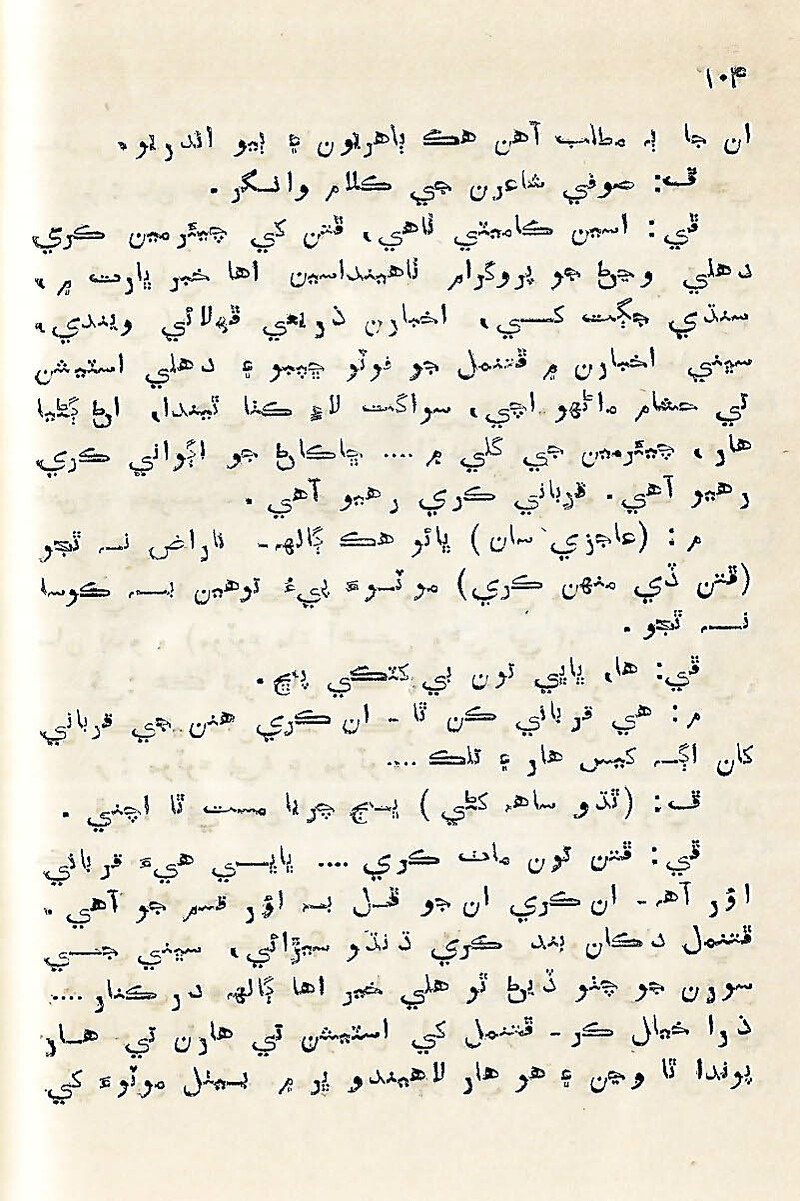 ۱۰۴
ان جا ٻه مطلب آهن هڪ ٻاهريون ۽ ٻيو اندريو.
ف: صوفي شاعرن جي ڪلام وانگر.
ڦي: اسين ڪاميٽي ٺاهي، ڦتن کي چيئرمين ڪري
دهلي وڃڻ جو پروگرام ٺاهينداسين اها خبر ڀارت ۾،
سنڌي جڳت کي، اخبارن ذريعي ڦهلائي ويندي،
سڀني اخبارن ۾ ڦتنمل جو فوٽو ڇپبو ۽ دهلي اسٽيشن
تي حشام ماڻهو اچي، سواگت لاءِ ڪٺا ٿيندا، اڻ ڳڻيا
هار، چيئرمين جي گلي ۾ .... ڇاڪاڻ جو اڳواڻي ڪري
رهيو آهي. قرباني ڪري رهيو آهي.
م: (عاجزي سان) ڀائو هڪ ڳالهه - ناراض نه ٿجو
(ڦتن ڏي منهن ڪري) موٽوءَ پيءُ توهين به ڪوسا
نه ٿجو.
ڦي: ها، ڀاڀي تون بي کٽڪي پڇ.
م: هي قرباني ڪن ٿا - ان ڪري هنن جي قرباني
کان اڳ کين هار ۽ تلڪ ....
ف: (ٿڌو ساهه کڻي) ڀڄ چريا مست ٿا اچني.
ڦي: ڦتن تون ماٺ ڪري .... ڀاڀي هيءَ قرباني
اؤر آهه - ان ڪري ان جو ڦل به اؤر قسم جو آهي.
ڦتنمل دڪان بند ڪري ڌنڌو سيڙائي، سڀني جي
سورن جو چنو ڏيڻ ٿو هلي خير اها ڳالهه درڪنار ....
ذرا خيال ڪر - ڦتنمل کي اسٽيشن تي هارن تي هار
پوندا ٿا وڃن ۽ هو هار لاهيندو ڀر ۾ بيٺل موٽوءَ کي